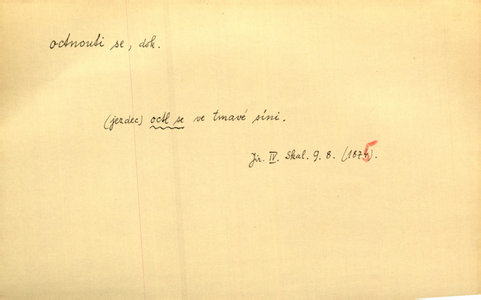 octnouti se, dok.
(jezdec) octl se ve tmavé síni.
Jir. IV. Skal. 9. 8. (1875).